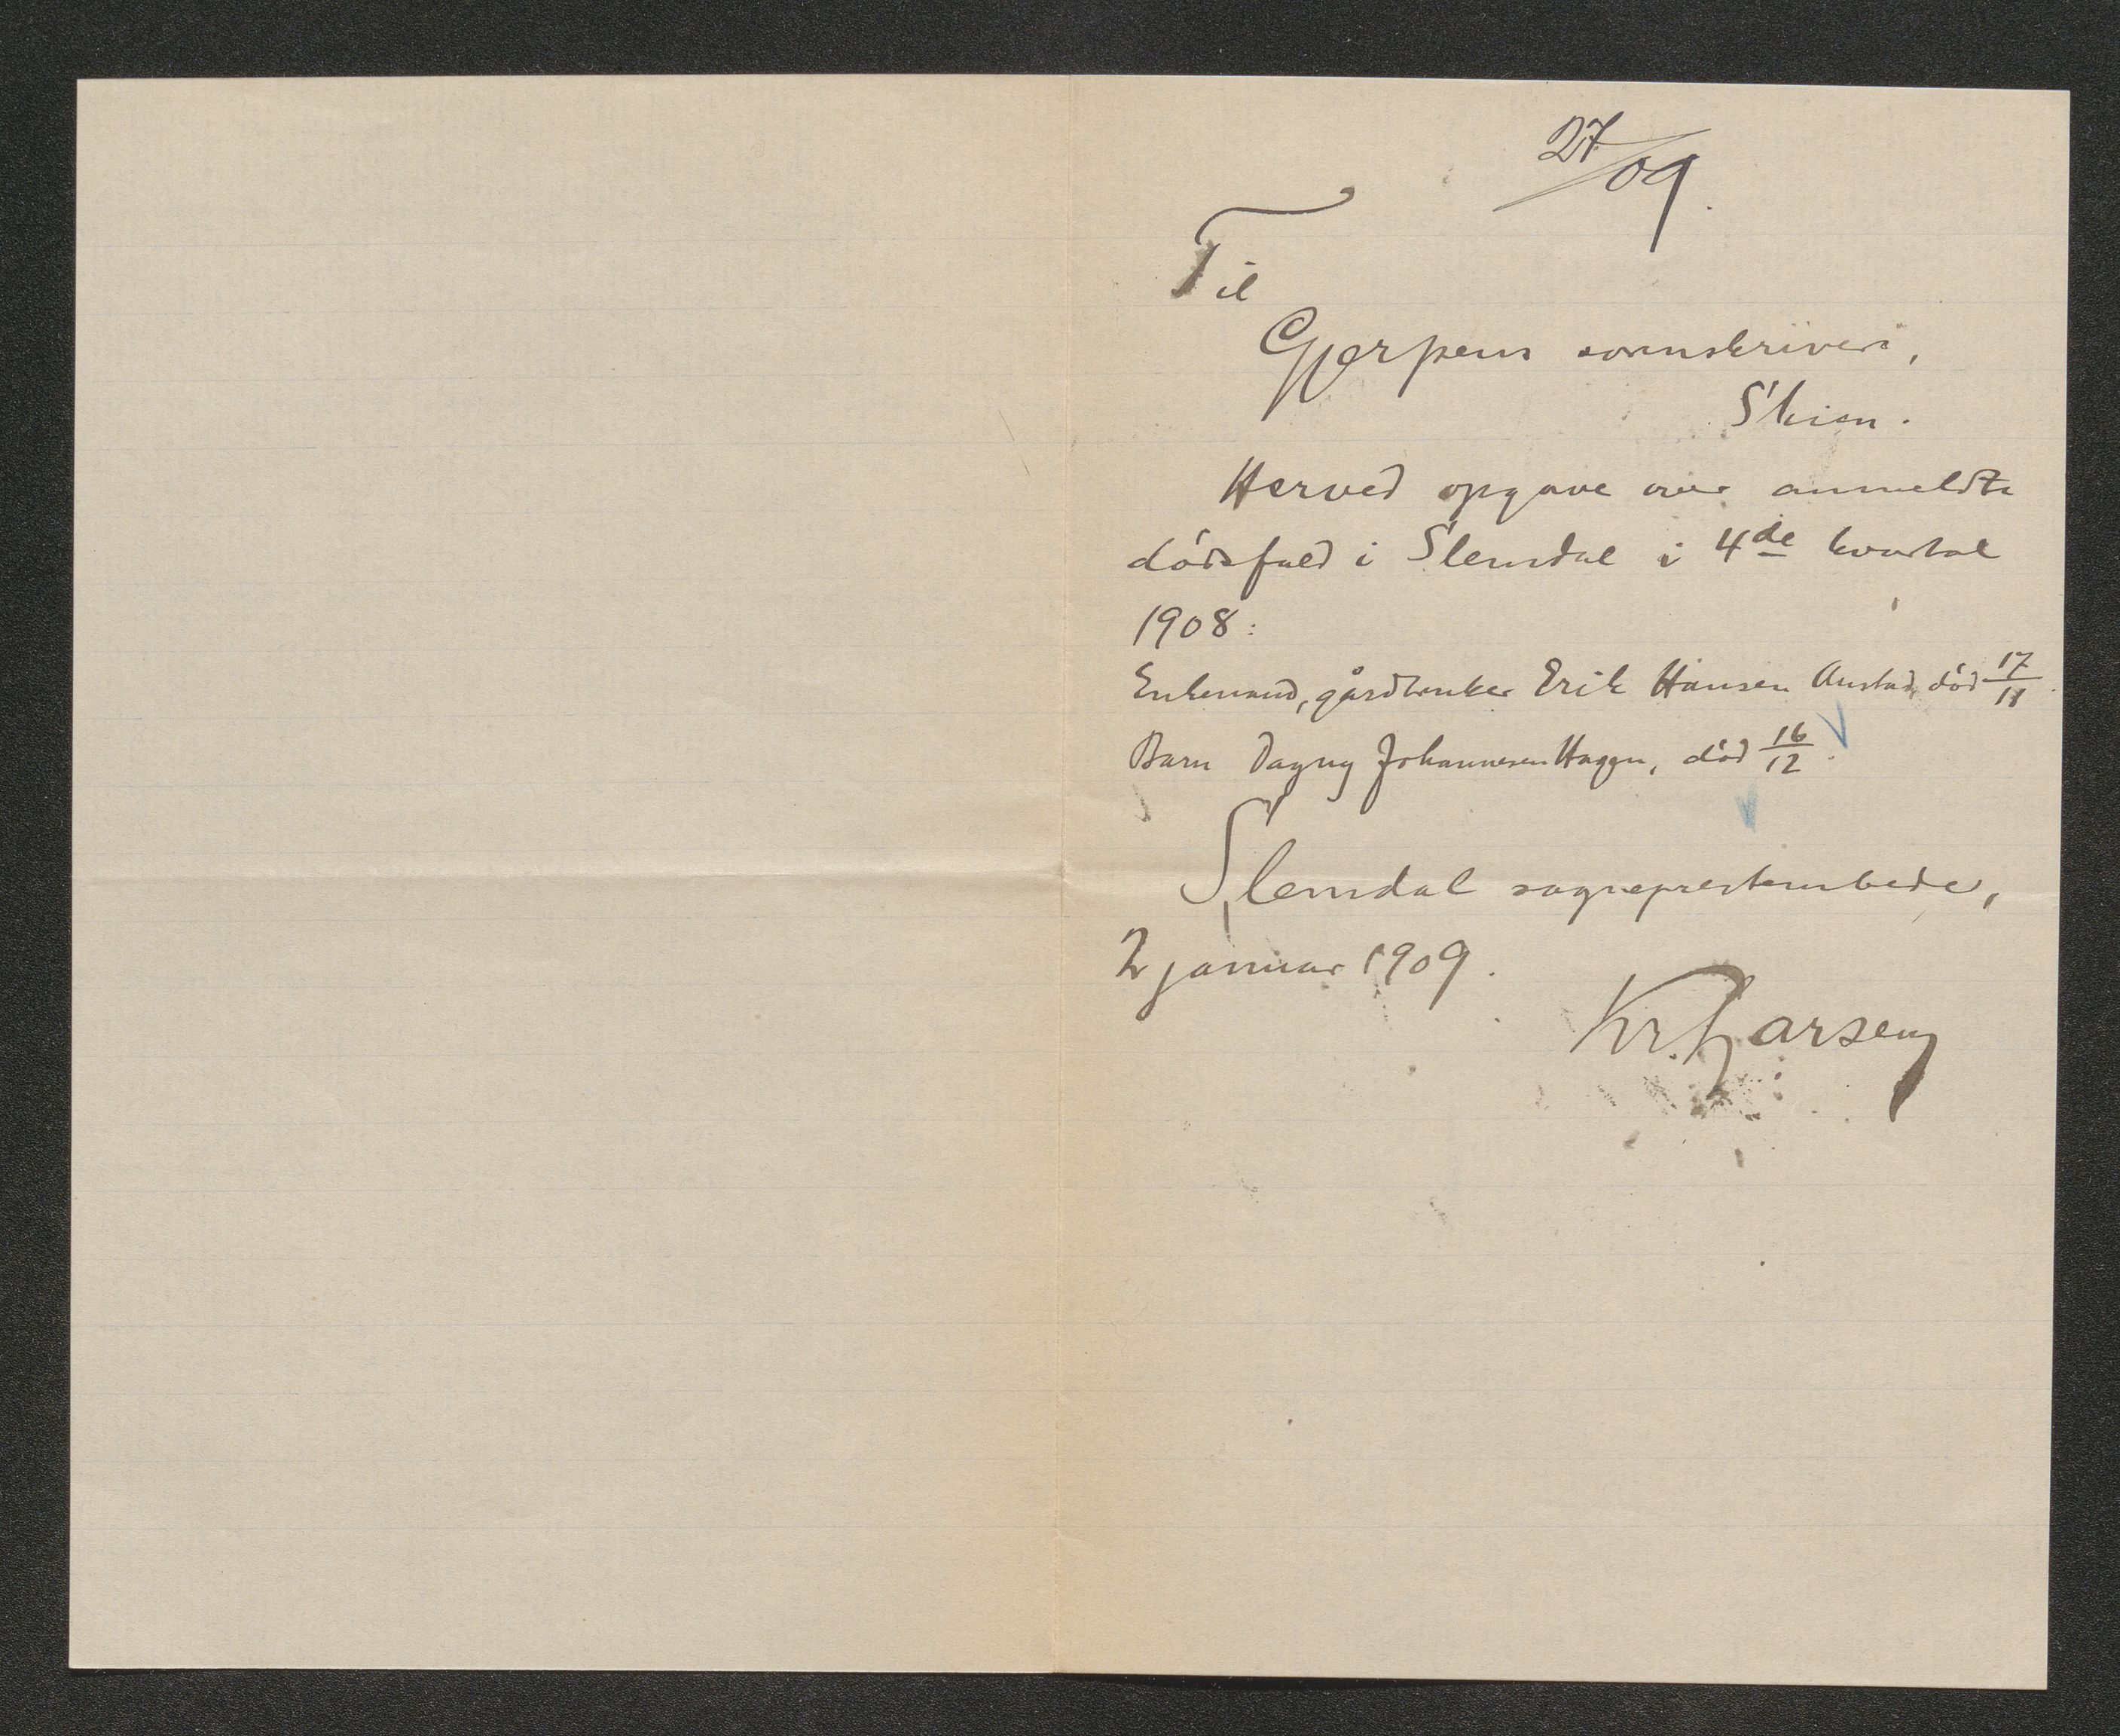 27/09.
Til
Gjerpens sorenskriveri,
Skien.
Herved opgave over anmeldte
dødsfald i Slemdal i 4de kvartal
1908:
Enkemand, gårdbruker Erik Hansen Austad, død 17/11.
Barn Dagny Johannesen Haagen, død 16/12.
Slemdal sogneprestembede,
2 januar 1909.
Kr. Larsen